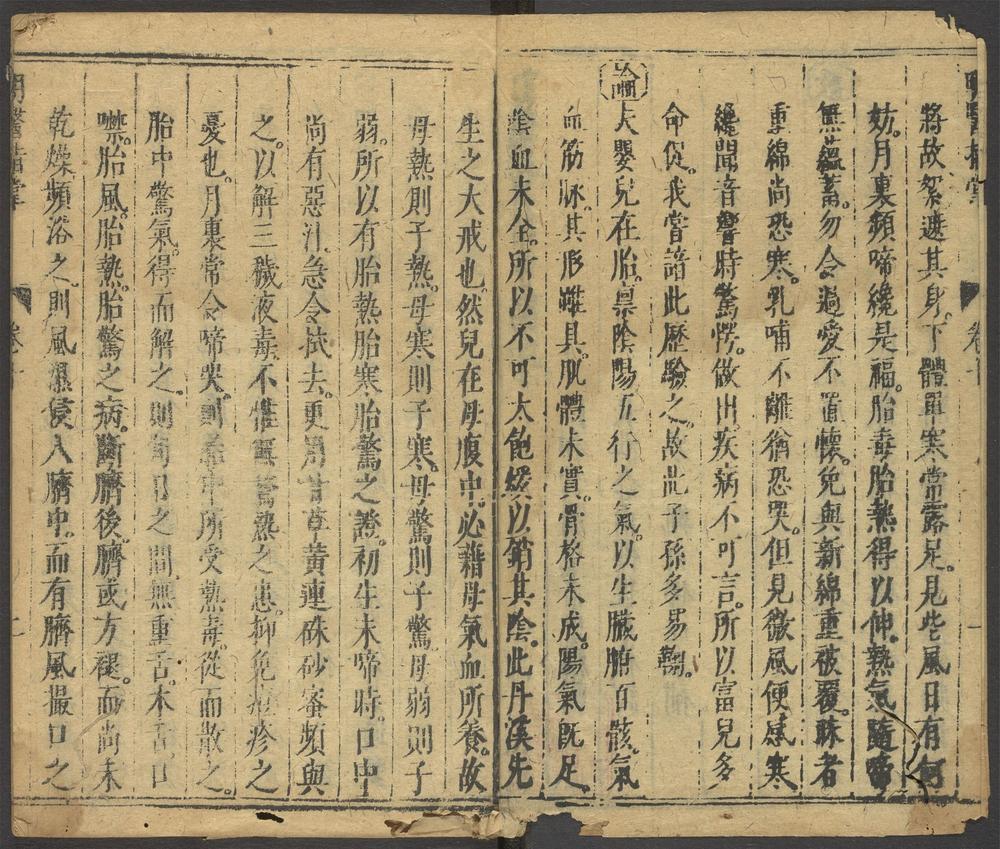 將故絮遮其身。下體單寒常露足。見些風日有何
妨。月裏頻啼纔是福。胎毒胎熱得以伸。熱氣隨啼
無蘊蓄。勿令過愛不置懷。免與新綿重被覆。昧者
重綿尚恐寒。乳哺不離猶恐哭。但見微風便感寒
纔聞音響時驚愕。做出疾病不可言。所以富兒多
命促。我嘗諳此歷驗之。故此子孫多易鞠。
論
夫嬰兒在胎。禀陰陽五行之氣。以生臟腑百骸。氣
血筋脉。其形雖具。肌體未實。骨格未成。陽氣既足。
陰血未全。所以不可太飽煖以銷其陰。此丹溪先
生之大戒也。然兒在母腹中。必藉母氣血所養。故
母熱則子熱。母寒則子寒。母驚則子驚。母弱則子
弱。所以有胎熱胎寒胎驚之證。初生未啼時。口中
尚有惡汁。急令拭去。更用甘草黄連硃砂蜜頻與
之。以解三穢液毒。不惟無驚熱之患。抑免痘疹之
憂也。月裏常令啼哭。則胎中所受熱毒。從而散之。
胎中驚氣。得而解之。則期月之間。無重舌。木舌。口
噤。胎風。胎熱。胎驚之病。斷臍後。臍或方褪。而尚未
乾燥。頻浴之。則風濕侵入臍中。而有臍風撮口之
明醫指掌
卷十